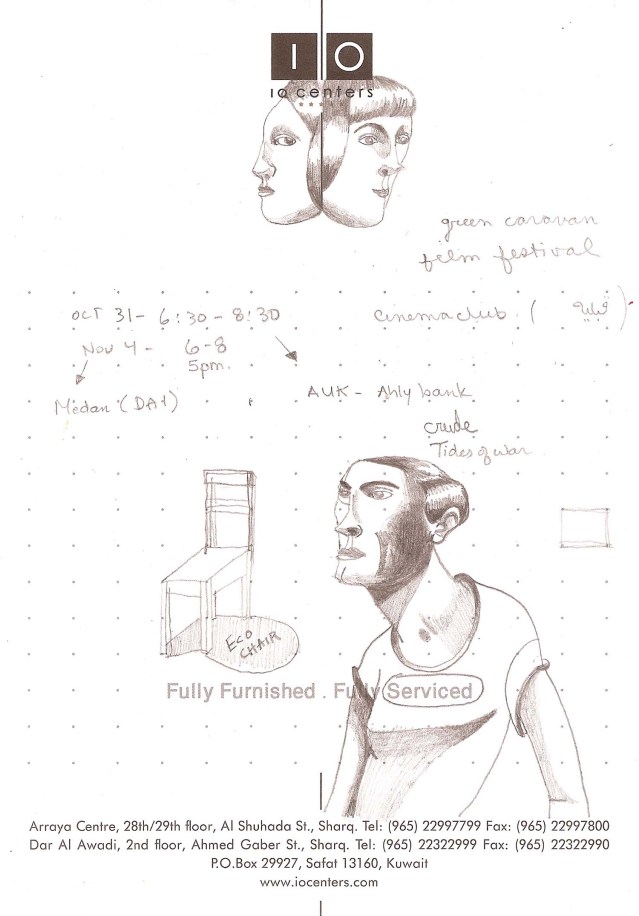 IO
io centers
green caravan
film festival
OCT 31 - 6:30 - 8:30
cinema club (
Nov 4 - 6-8
5pm.
Medan (DAI)
AUK - Ahly bank
crude
Tides of war
ECO
CHAIR
Fully Furnished . Fully Serviced
Arraya Centre, 28th/29th floor, Al Shuhada St., Sharq. Tel: (965) 22997799 Fax: (965) 22997800
Dar Al Awadi, 2nd floor, Ahmed Gaber St., Sharq. Tel: (965) 22322999 Fax: (965) 22322990
P.O.Box 29927, Safat 13160, Kuwait
www.iocenters.com